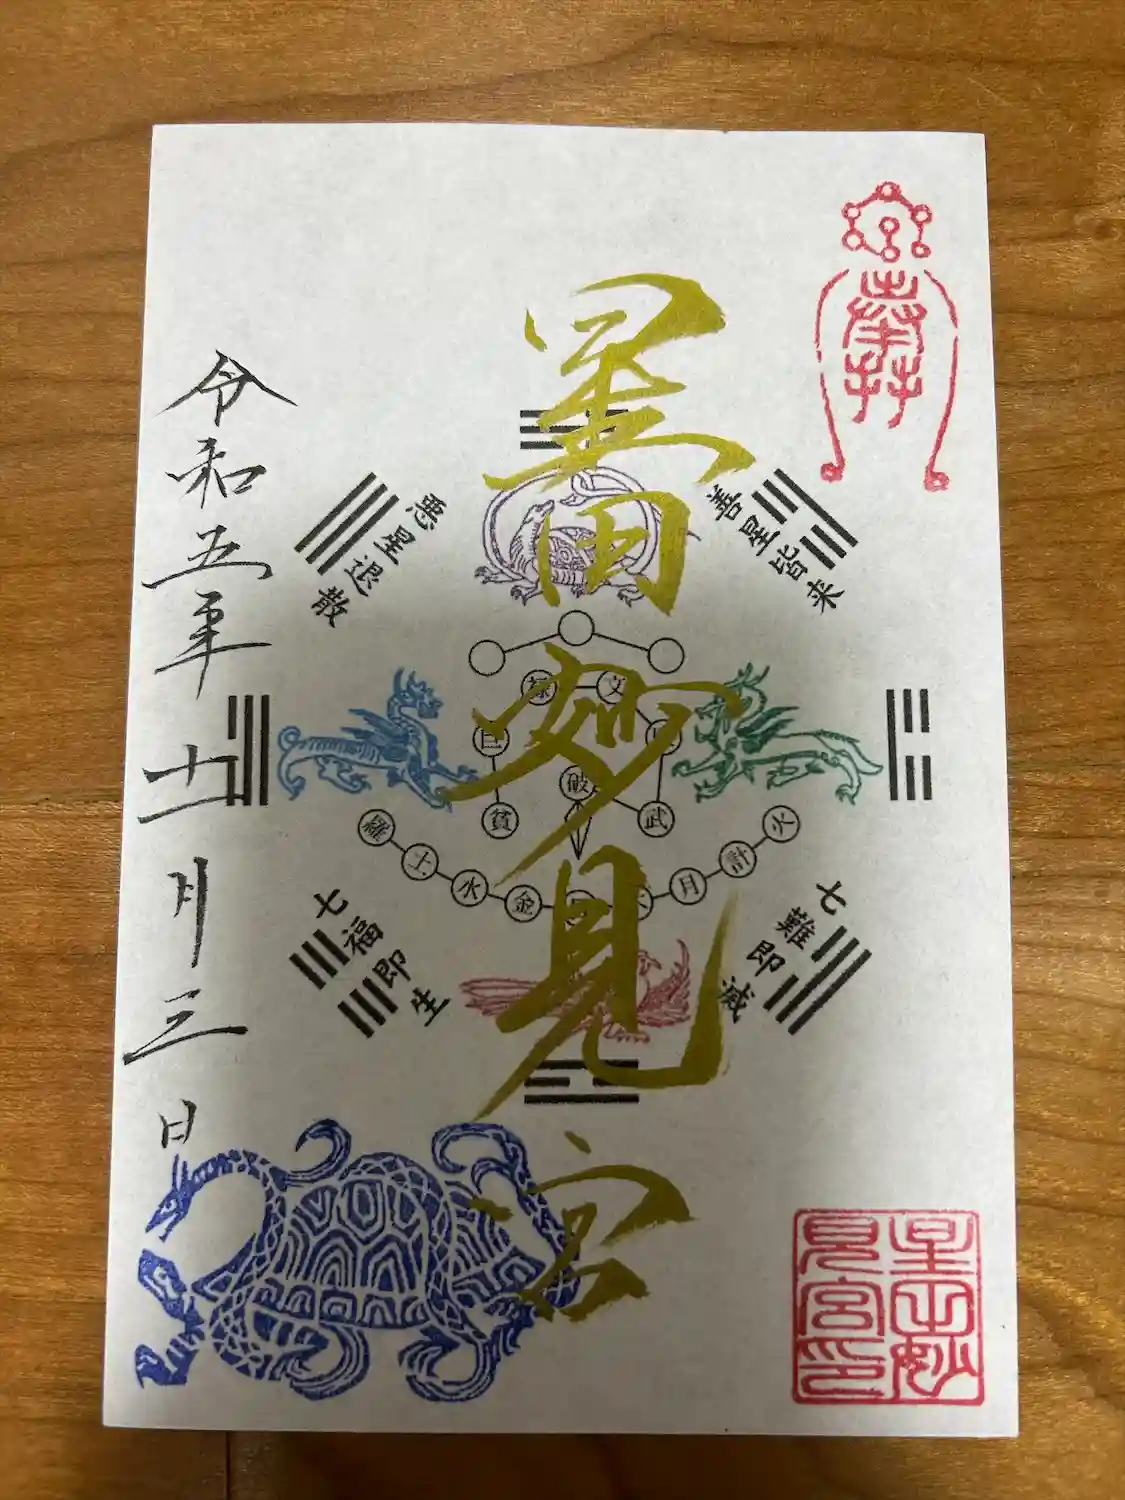 奉拝
星田妙見宮
善星皆来
悪星退散
禄
文
巨
破
貧
武
羅
土
水
金
月
計
火
七難即滅
七福即生
令和五年十一月三日
星田妙見宮印